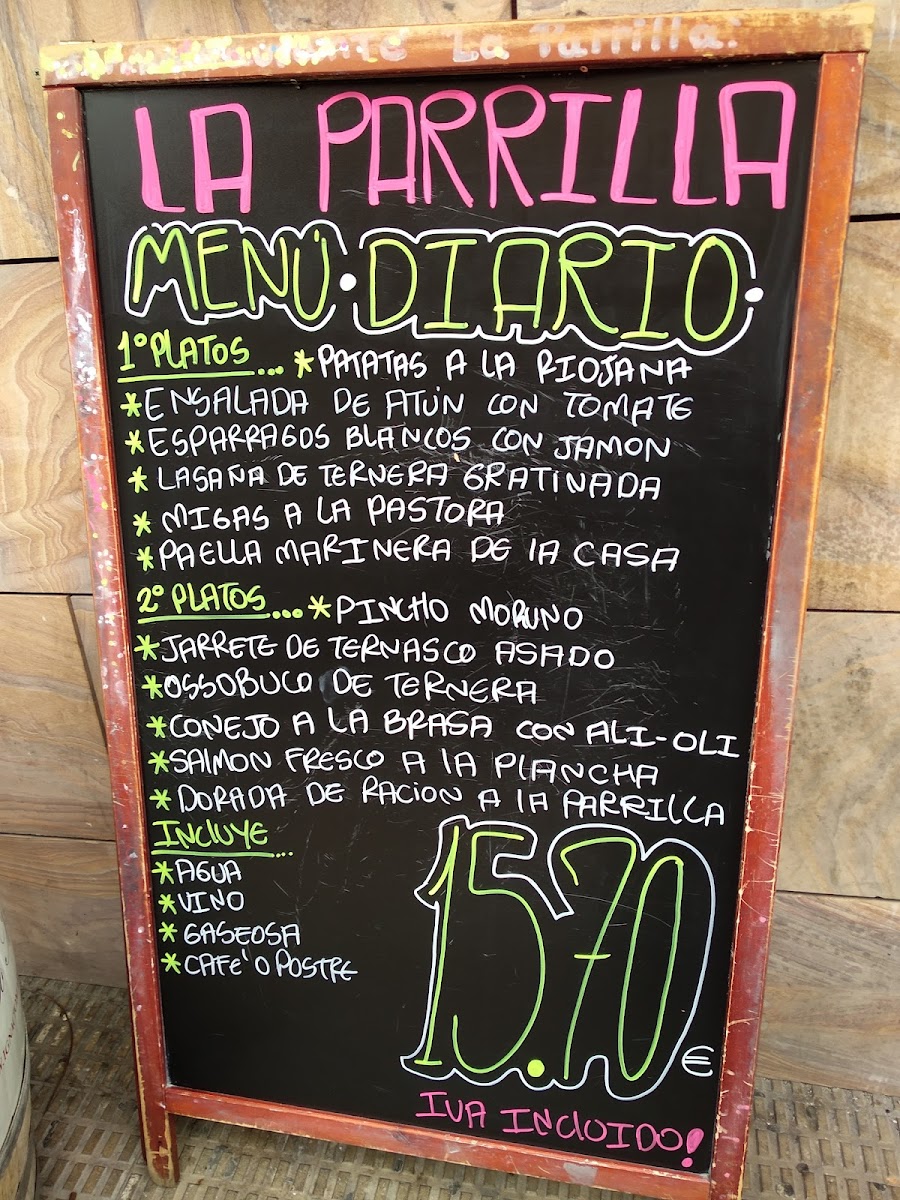 La Parrilla.
LA PARRILLA
MENÚ · DIARIO ·
1º PLATOS... * PATATAS A LA RIOJANA
* ENSALADA DE ATÚN CON TOMATE
* ESPARRAGOS BLANCOS CON JAMON
* LASAÑA DE TERNERA GRATINADA
* MIGAS A LA PASTORA
* PAELLA MARINERA DE lA CASA
2º PLATOS... * PINCHO MORUNO
* JARRETE DE TERNASCO ASADO
* OSSOBUCO DE TERNERA
* CONEJO A LA BRASA CON ALI-OLI
* SALMON FRESCO A lA PLANCHA
* DORADA DE RACION A lA PARRILLA
INCLUYE...
* AGUA
* VINO
* GASEOSA
* CAFE' O POSTRE
15.70 €
IVA INCLUIDO!